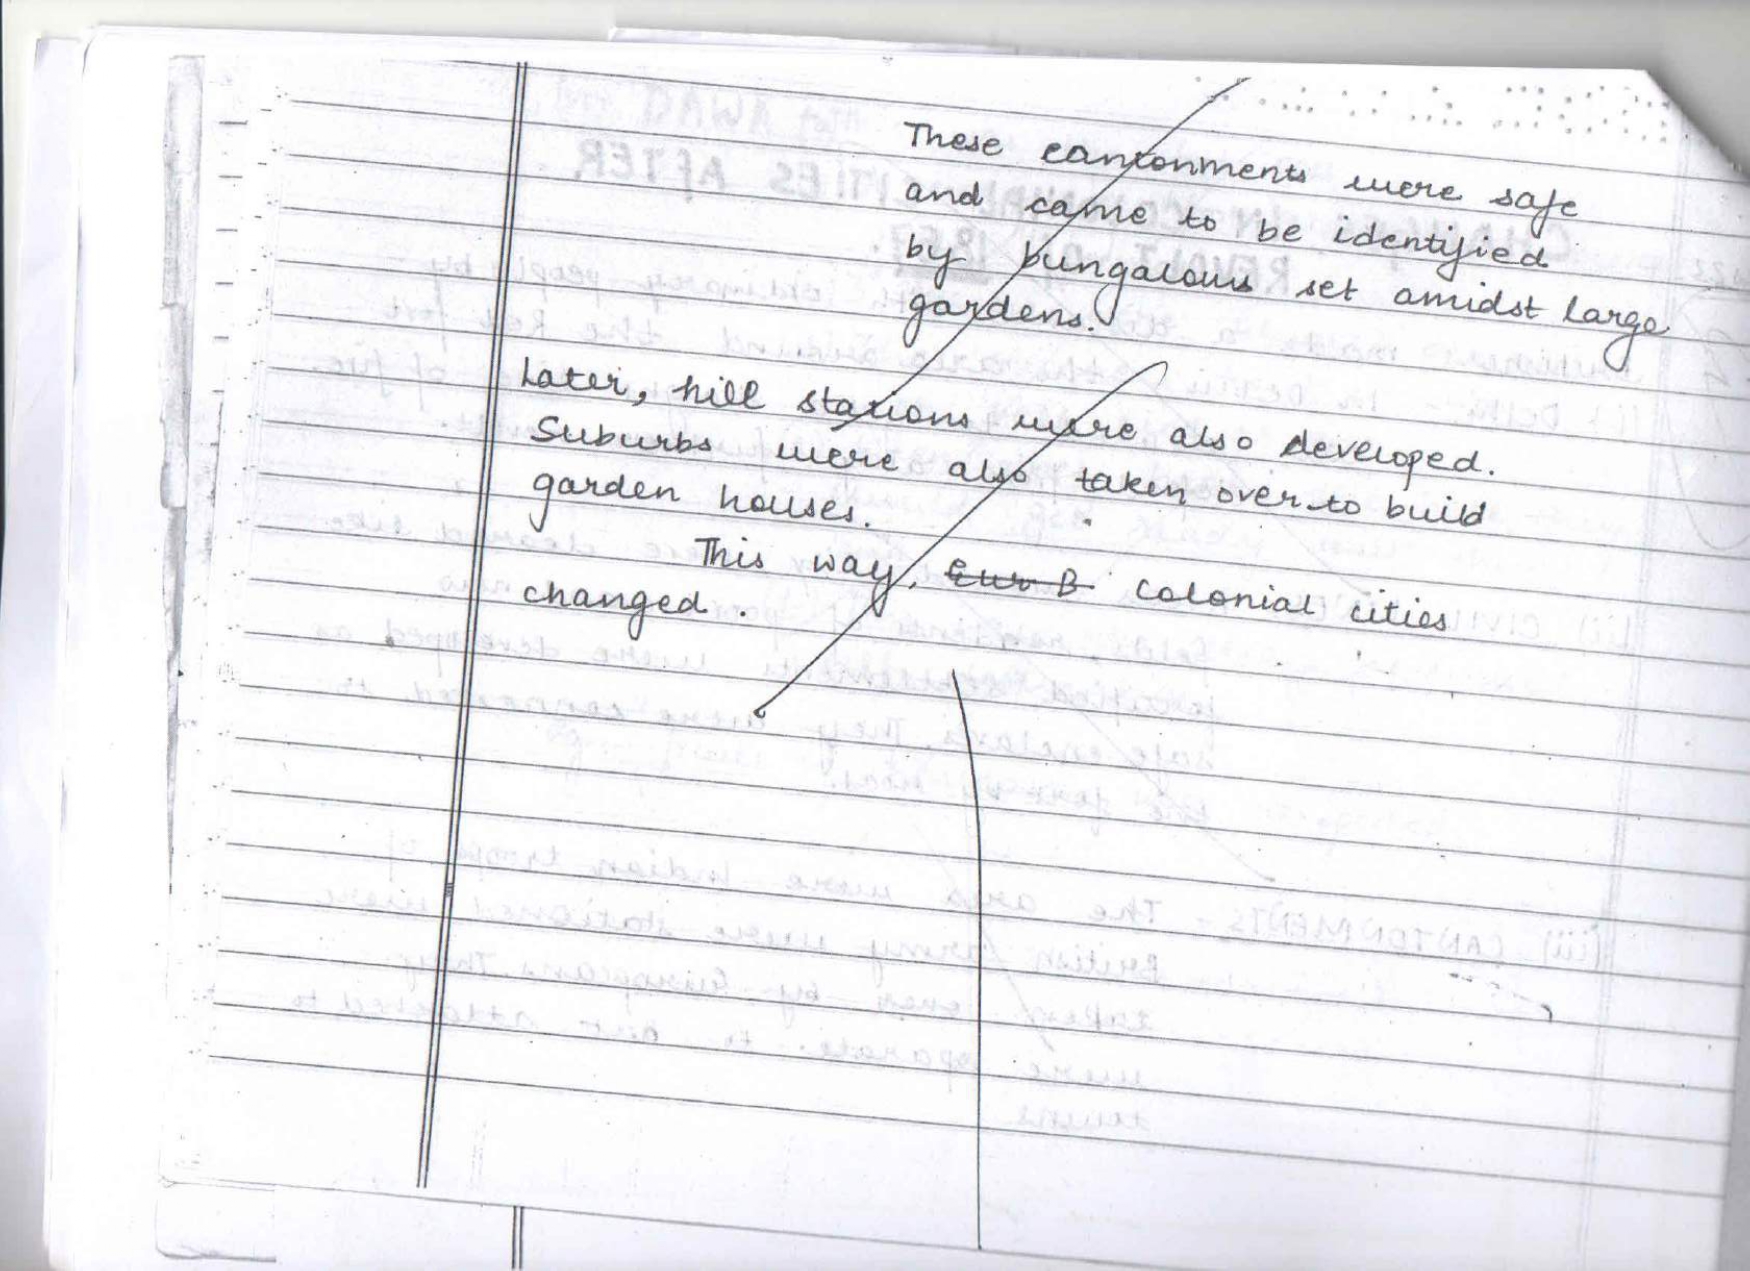 These cantonments were safe
and came to be identified
by bungalows set amidst large
gardens.
Later, hill stations were also developed.
Suburbs were also taken over to build
garden houses.
This way, Eur B colonial cities
changed.